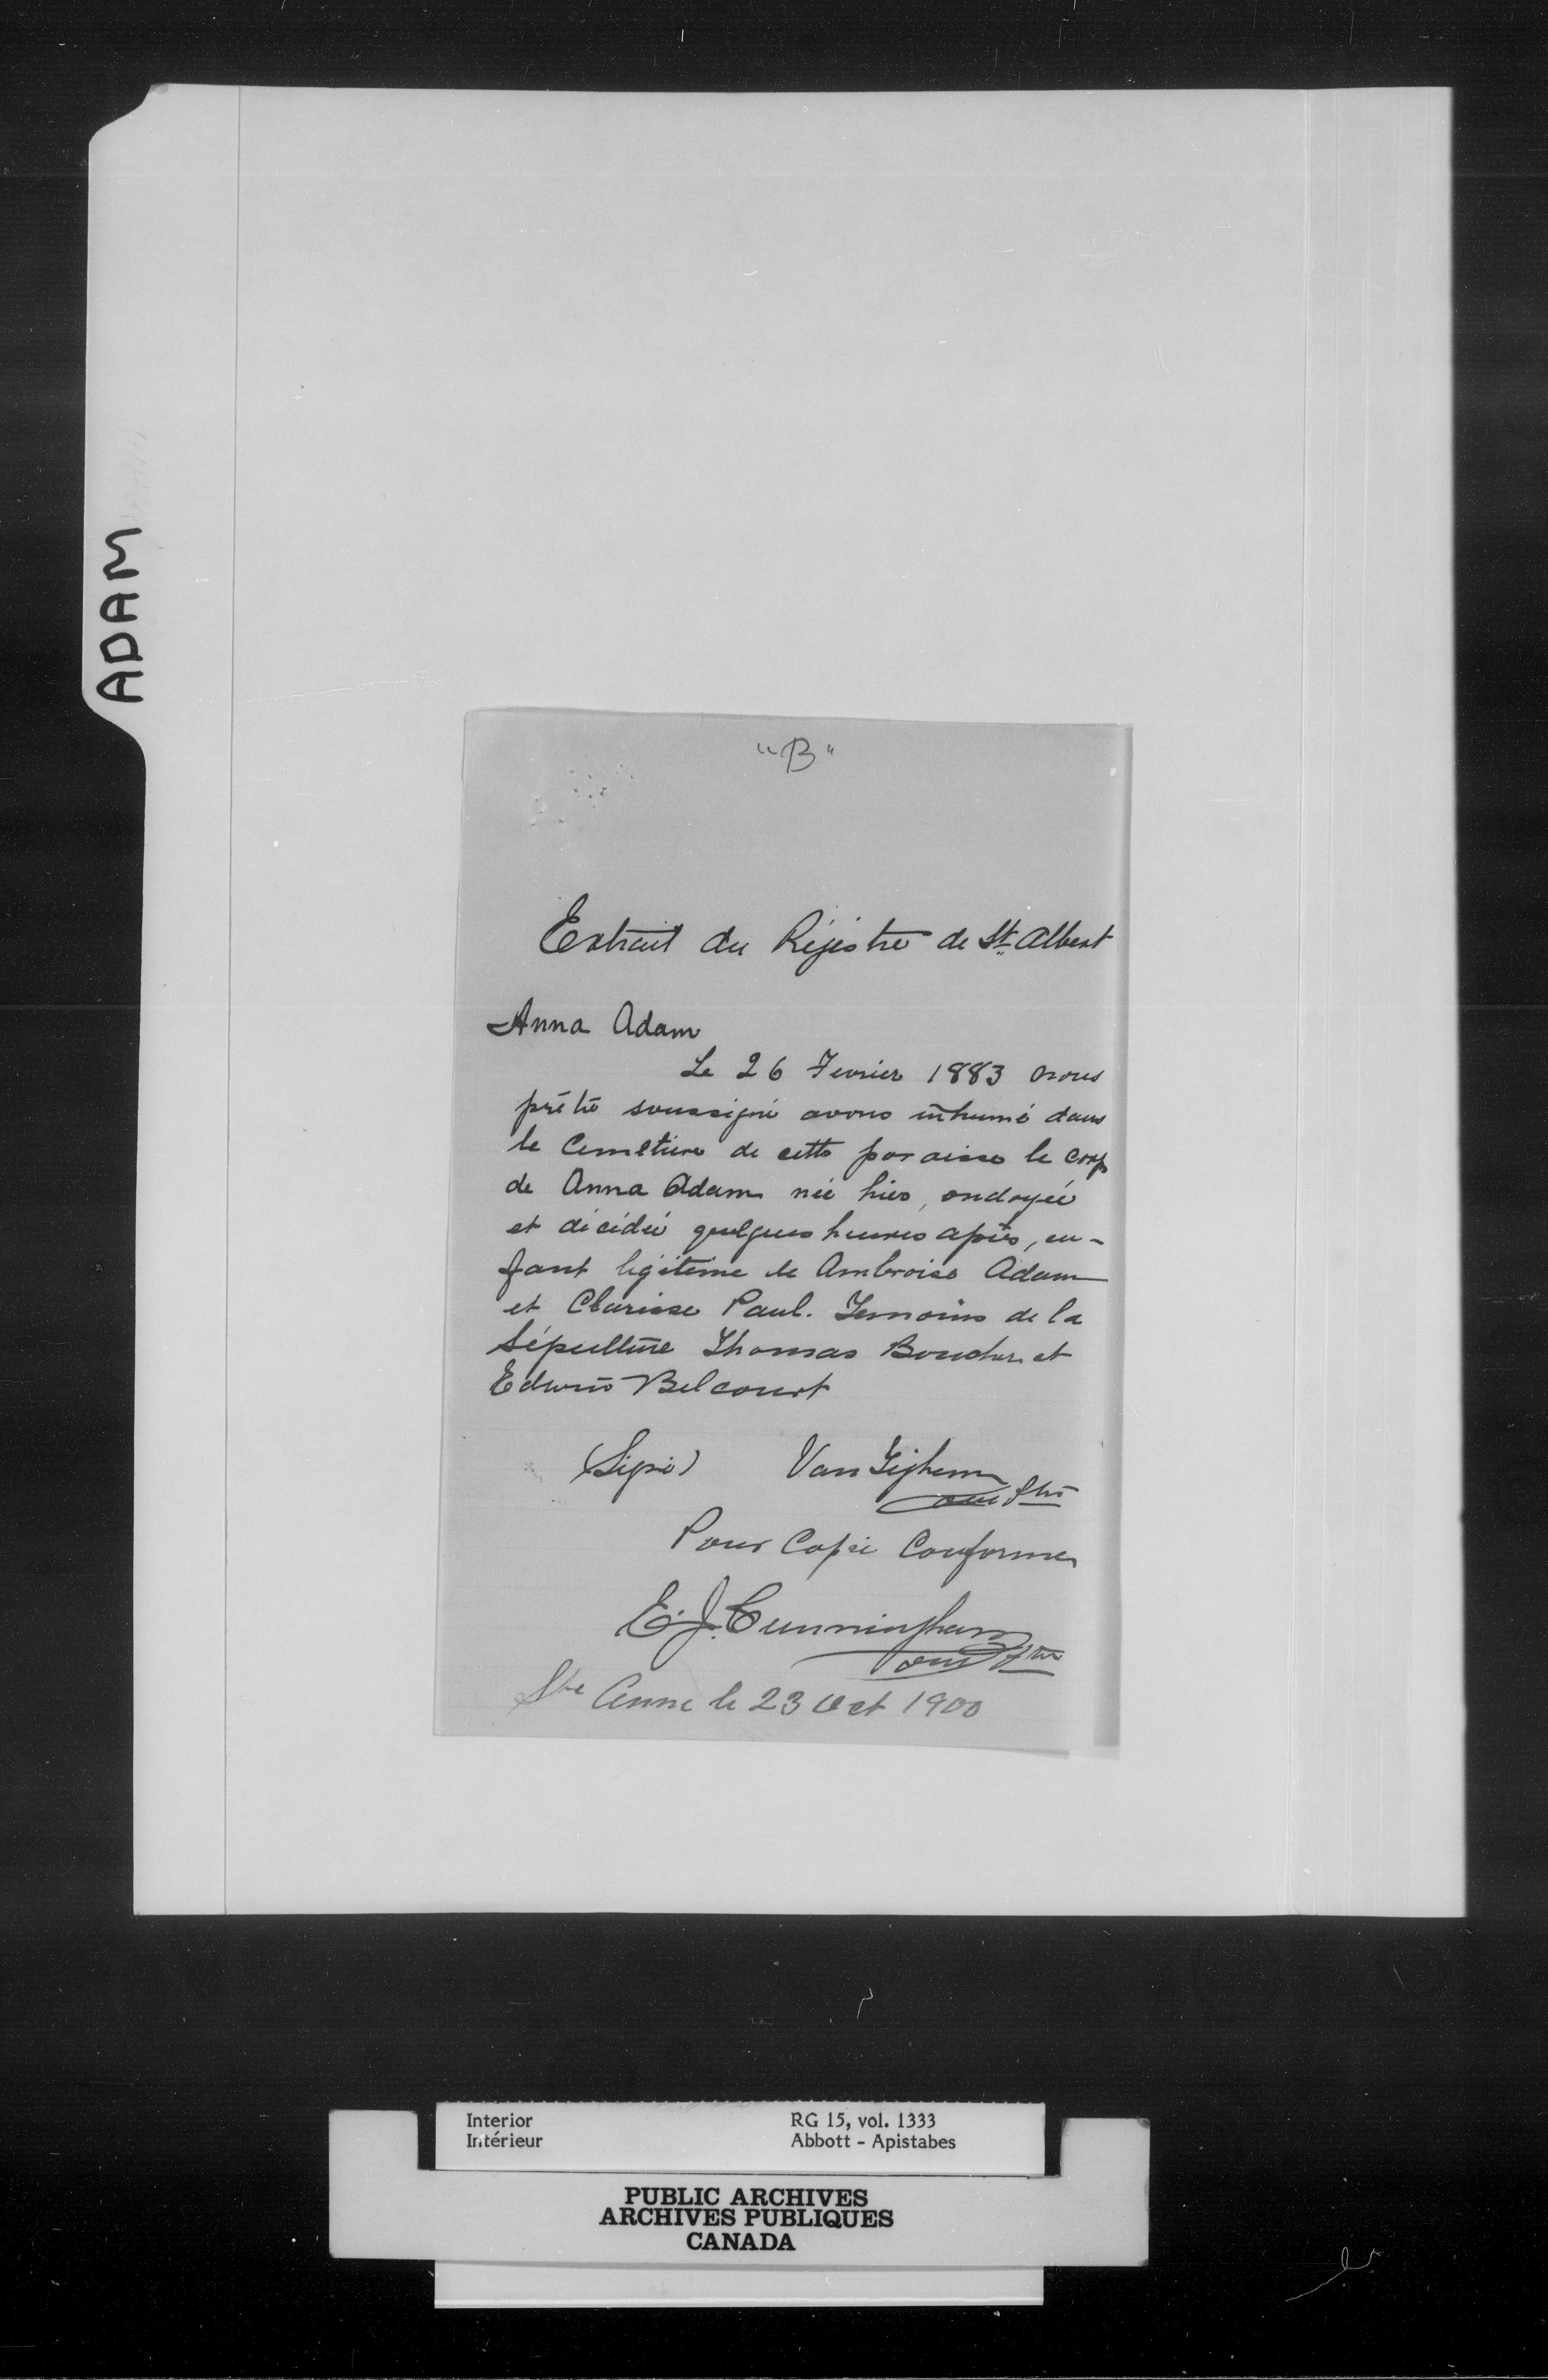 ADAM
"B"
Extrait du Régistre de St. Albert
Anna Adam
Le 26 Fevrier 1883 nous
prêtre soussigné avons inhumé dans
le Cemetiere de cette paroisse le corps
de Anna Adam née hier, ondoyée
et décédée quelques heures après, en-
fant légitime de Ambroise Adam
et Clarisse Paul. Temoins de la
Sépulture Thomas Boucher et
Edwin Belcourt
(Signé) Van Tighem
omi Ptre
Pour Copie Conforme
E. J. Cunningham
omi Ptre
Ste Anne le 23 Oct 1900
Interior RG 15, vol. 1333
Intérieur Abbott - Apistabes
PUBLIC ARCHIVES
ARCHIVES PUBLIQUES
CANADA